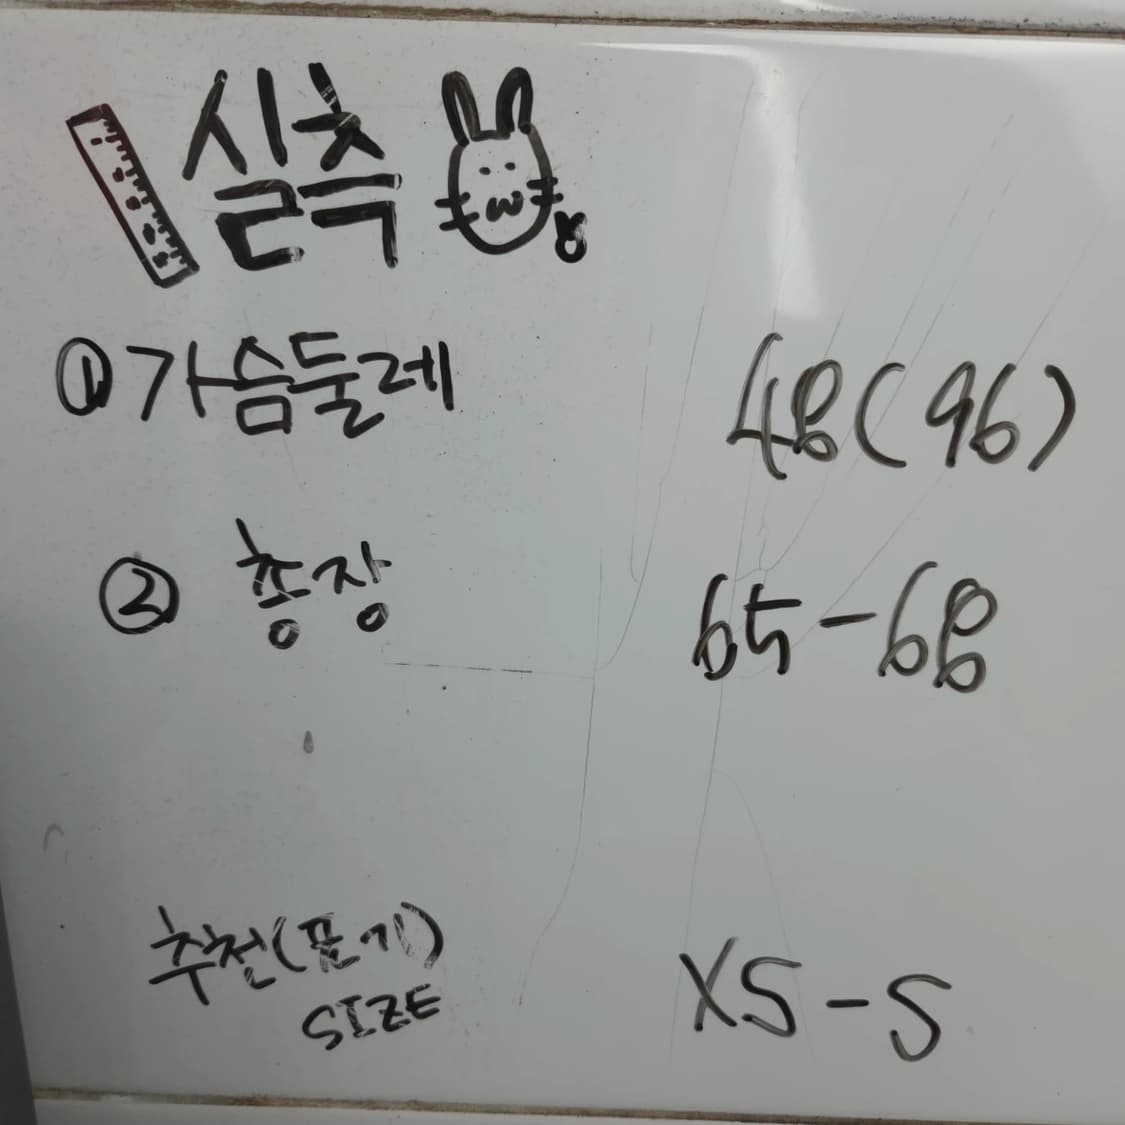 실측
① 가슴둘레 48(96)
② 총장 65-68
추천(표기) XS-S
SIZE